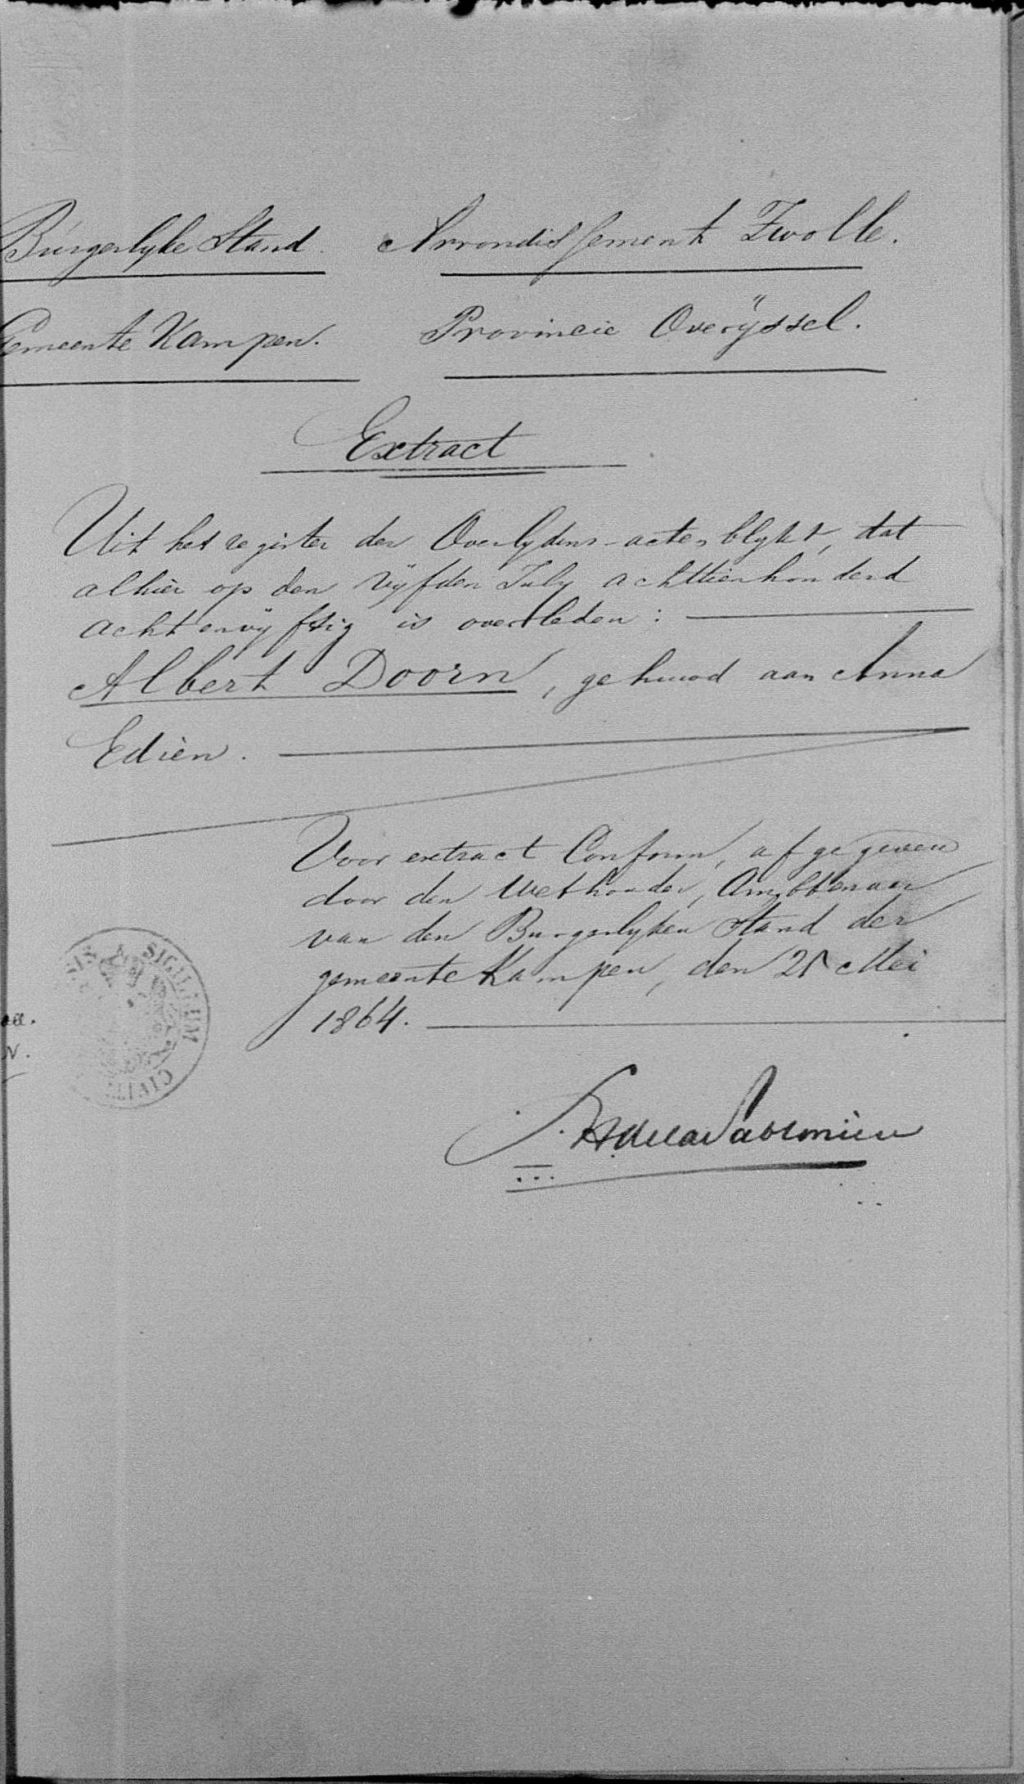 Burgerlyke Stand. Arrondissement Zwolle.
Gemeente Kampen. Provincie Overÿssel.
Extract
Uit het register der Overlydens-actes blykt, dat
alhier op den vyfden July achttienhonderd
achtenvyftig is overleden:
Albert Doorn, gehuwd aan Anna
Edien.
Voor extract Conform, afgegeven
door den Wethouder, Ambtenaar
van den Burgerlyken Stand der
gemeente Kampen, den Mei
1864.
SIGILLUM